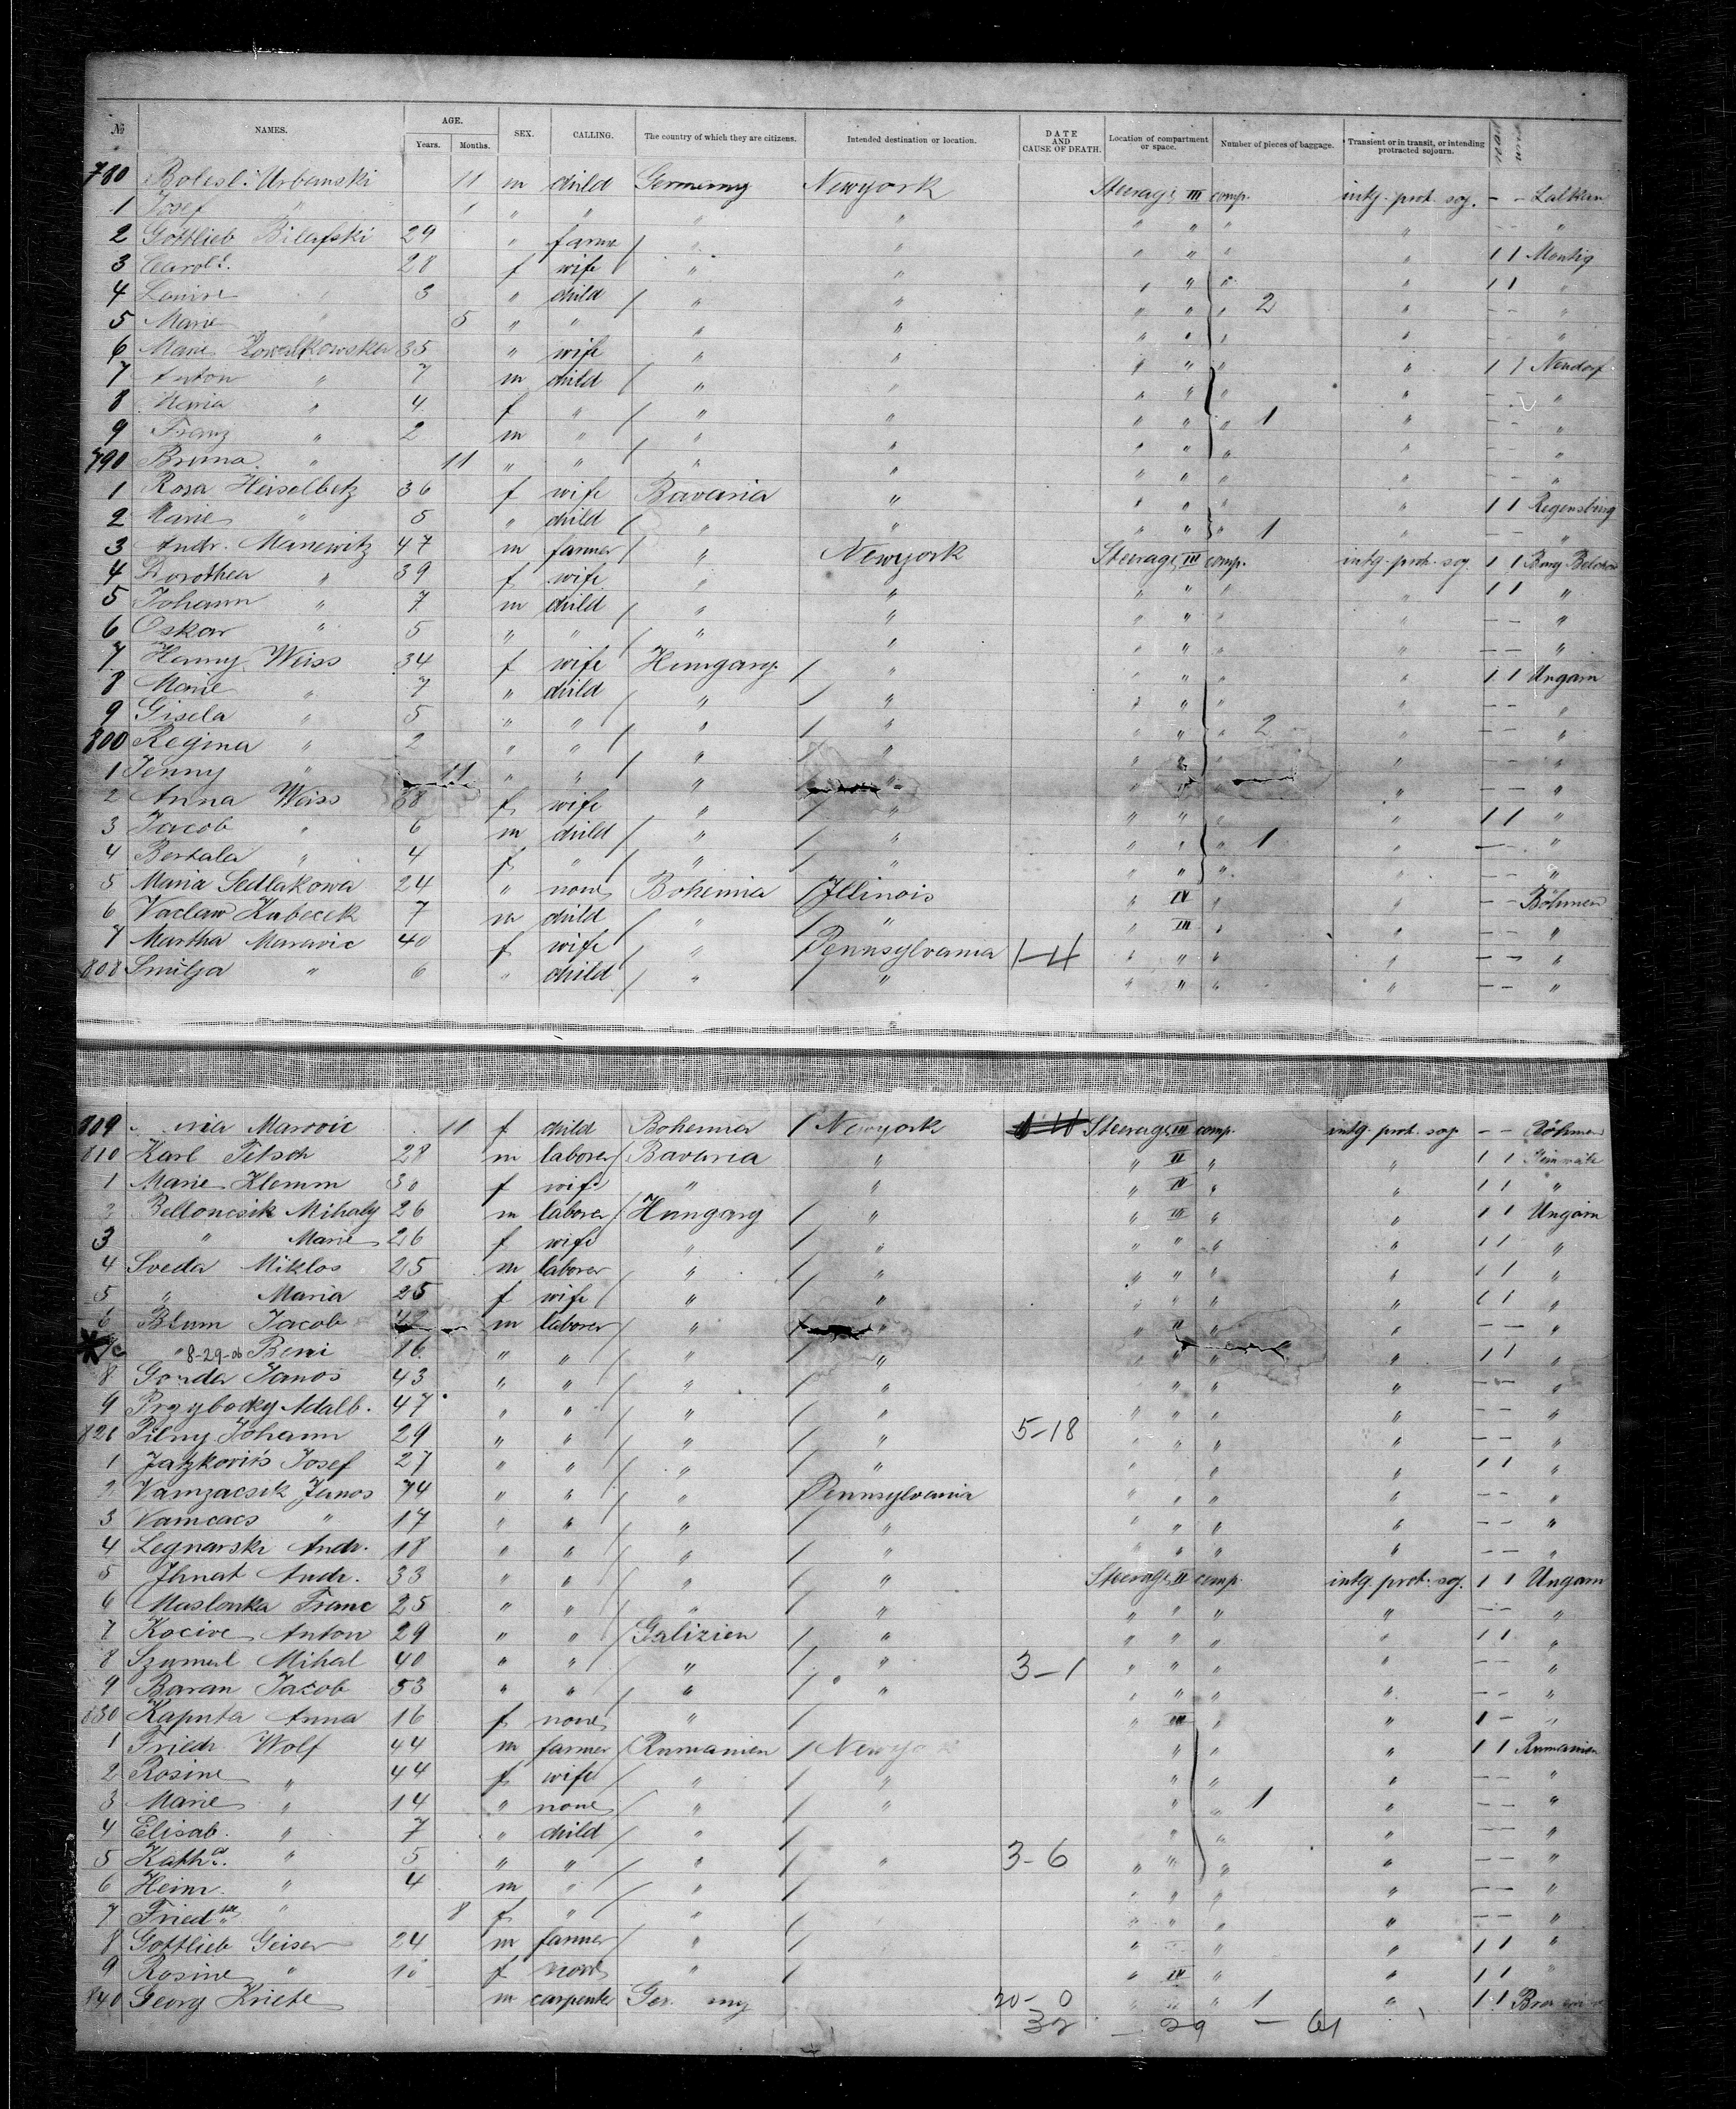 № NAMES. AGE. Years. Months. SEX. CALLING. The country of which they are citizens. Intended destination or location. DATE AND CAUSE OF DEATH. Location of compartment or space. Number of pieces of baggage. Transient or in transit, or intending protracted sojourn. read write
780 Bolesl. Urbanski 11 m child Germany Newyork Steerage III comp. intg. prot. soj. - -
1 Josef " " " " " " " " " - - "
2 Gottlieb Bilafski 29 " farmer " " " " " " 1 1 Montig
3 Carol. 28 f wife " " " " " " 1 1 "
4 Louise 3 " child " " " " " 2 " - - "
5 Marie " 5 " " " " " " " " - - "
6 Marie Kowalkowska 35 " wife " " " " " " 1 1 Neudorf
7 Anton " 7 m child " " " " " " - - "
8 Maria " 4 f " " " " " " 1 " - - "
9 Franz " 2 m " " " " " " " - - "
790 Bruna " 11 " " " " " " " " - - "
1 Rosa Heiselbetz 36 f wife Bavaria " " " " " 1 1 Regensburg
2 Marie " 5 " child " " " " " 1 " - - "
3 Andr. Manewitz 47 m farmer " Newyork Steerage III comp. intg. prot. soj. 1 1
4 Dorothea " 39 f wife " " " " " " 1 1 "
5 Johann " 7 m child " " " " " " - - "
6 Oskar " 5 " " " " " " " " - - "
7 Hanny Weiss 34 f wife Hungary " " " " " 1 1 Ungarn
8 Marie " 7 " child " " " " " " - - "
9 Gisela " 5 " " " " " " " " - - "
800 Regina " 2 " " " " " " " 2 " - - "
1 Jenny " 11 " " " " " " " " - - "
2 Anna Weiss 38 f wife " " " " " " 1 1 "
3 Jacob " 6 m child " " " " " 1 " - - "
4 Bertala " 4 f " " " " " " " - - "
5 Maria Sedlakowa 24 " none Bohemia Illinois " IV " " - - Böhmen
6 Vaclaw Kubecek 7 m child " " " III " " - - "
7 Martha Maravic 40 f wife " Pennsylvania 1-H " " " " - - "
808 Smilja " 6 " child " " " " " " - - "
809 Marovic 11 f child Bohemia Newyork Steerage III comp. intg. prot. soj. - - Böhmen
810 Karl Fetsch 28 m laborer Bavaria " " II " " 1 1
1 Marie Klemm 30 f wife " " " IV " " 1 1 "
2 Belloncsik Mihaly 26 m laborer Hungary " " III " " 1 1 Ungarn
3 " Marie 26 f wife " " " " " " 1 1 "
4 Sveda Miklos 25 m laborer " " " " " " 1 1 "
5 " Maria 25 f wife " " " " " " 1 1 "
6 Blum Jacob 42 m laborer " " " II " " - - "
7 " 8-29-06 Beni 16 " " " " " " " " 1 1 "
8 Gonda Janos 43 " " " " " " " " - - "
9 Przybocky Adalb. 47 " " " " " " " " - - "
820 Pilny Johann 29 " " " " 5-18 " " " " - - "
1 Jatzkovits Josef 27 " " " " " " " " 1 1 "
2 Vamzacsik Janos 74 " " " Pennsylvania " " " " - - "
3 Vamcacs " 17 " " " " " " " " - - "
4 Legnarski Andr. 18 " " " " " " " " - - "
5 Ihnat Andr. 33 " " " " Steerage II comp. intg. prot. soj. 1 1 Ungarn
6 Maslonka Franc 25 " " " " " " " " - - "
7 Kocive Anton 29 " " Galizien " " " " " 1 1 "
8 Szumal Mihal 40 " " " " 3-1 " " " " - - "
9 Baran Jacob 53 " " " " " " " " - - "
830 Kaputa Anna 16 f none " " III " " 1 - "
1 Friedr. Wolf 44 m farmer Rumanien Newyo " " " 1 1 Rumanien
2 Rosine " 44 f wife " " " " " - - "
3 Marie " 14 " none " " " " 1 " - - "
4 Elisab. " 7 " child " " " " - - "
5 Katha. " 5 " " " " 3-6 " " " " - - "
6 Heinr. " 4 m " " " " " " - - "
7 Friedke " 8 f " " " " " " - - "
8 Gottlieb Geiser 24 m farmer " " " " 1 1 "
9 Rosine " f none " " IV " " 1 1 "
840 Georg Kriete m carpenter Ger my 20-0 " " " 1 " 1 1
32 - 29 - 61